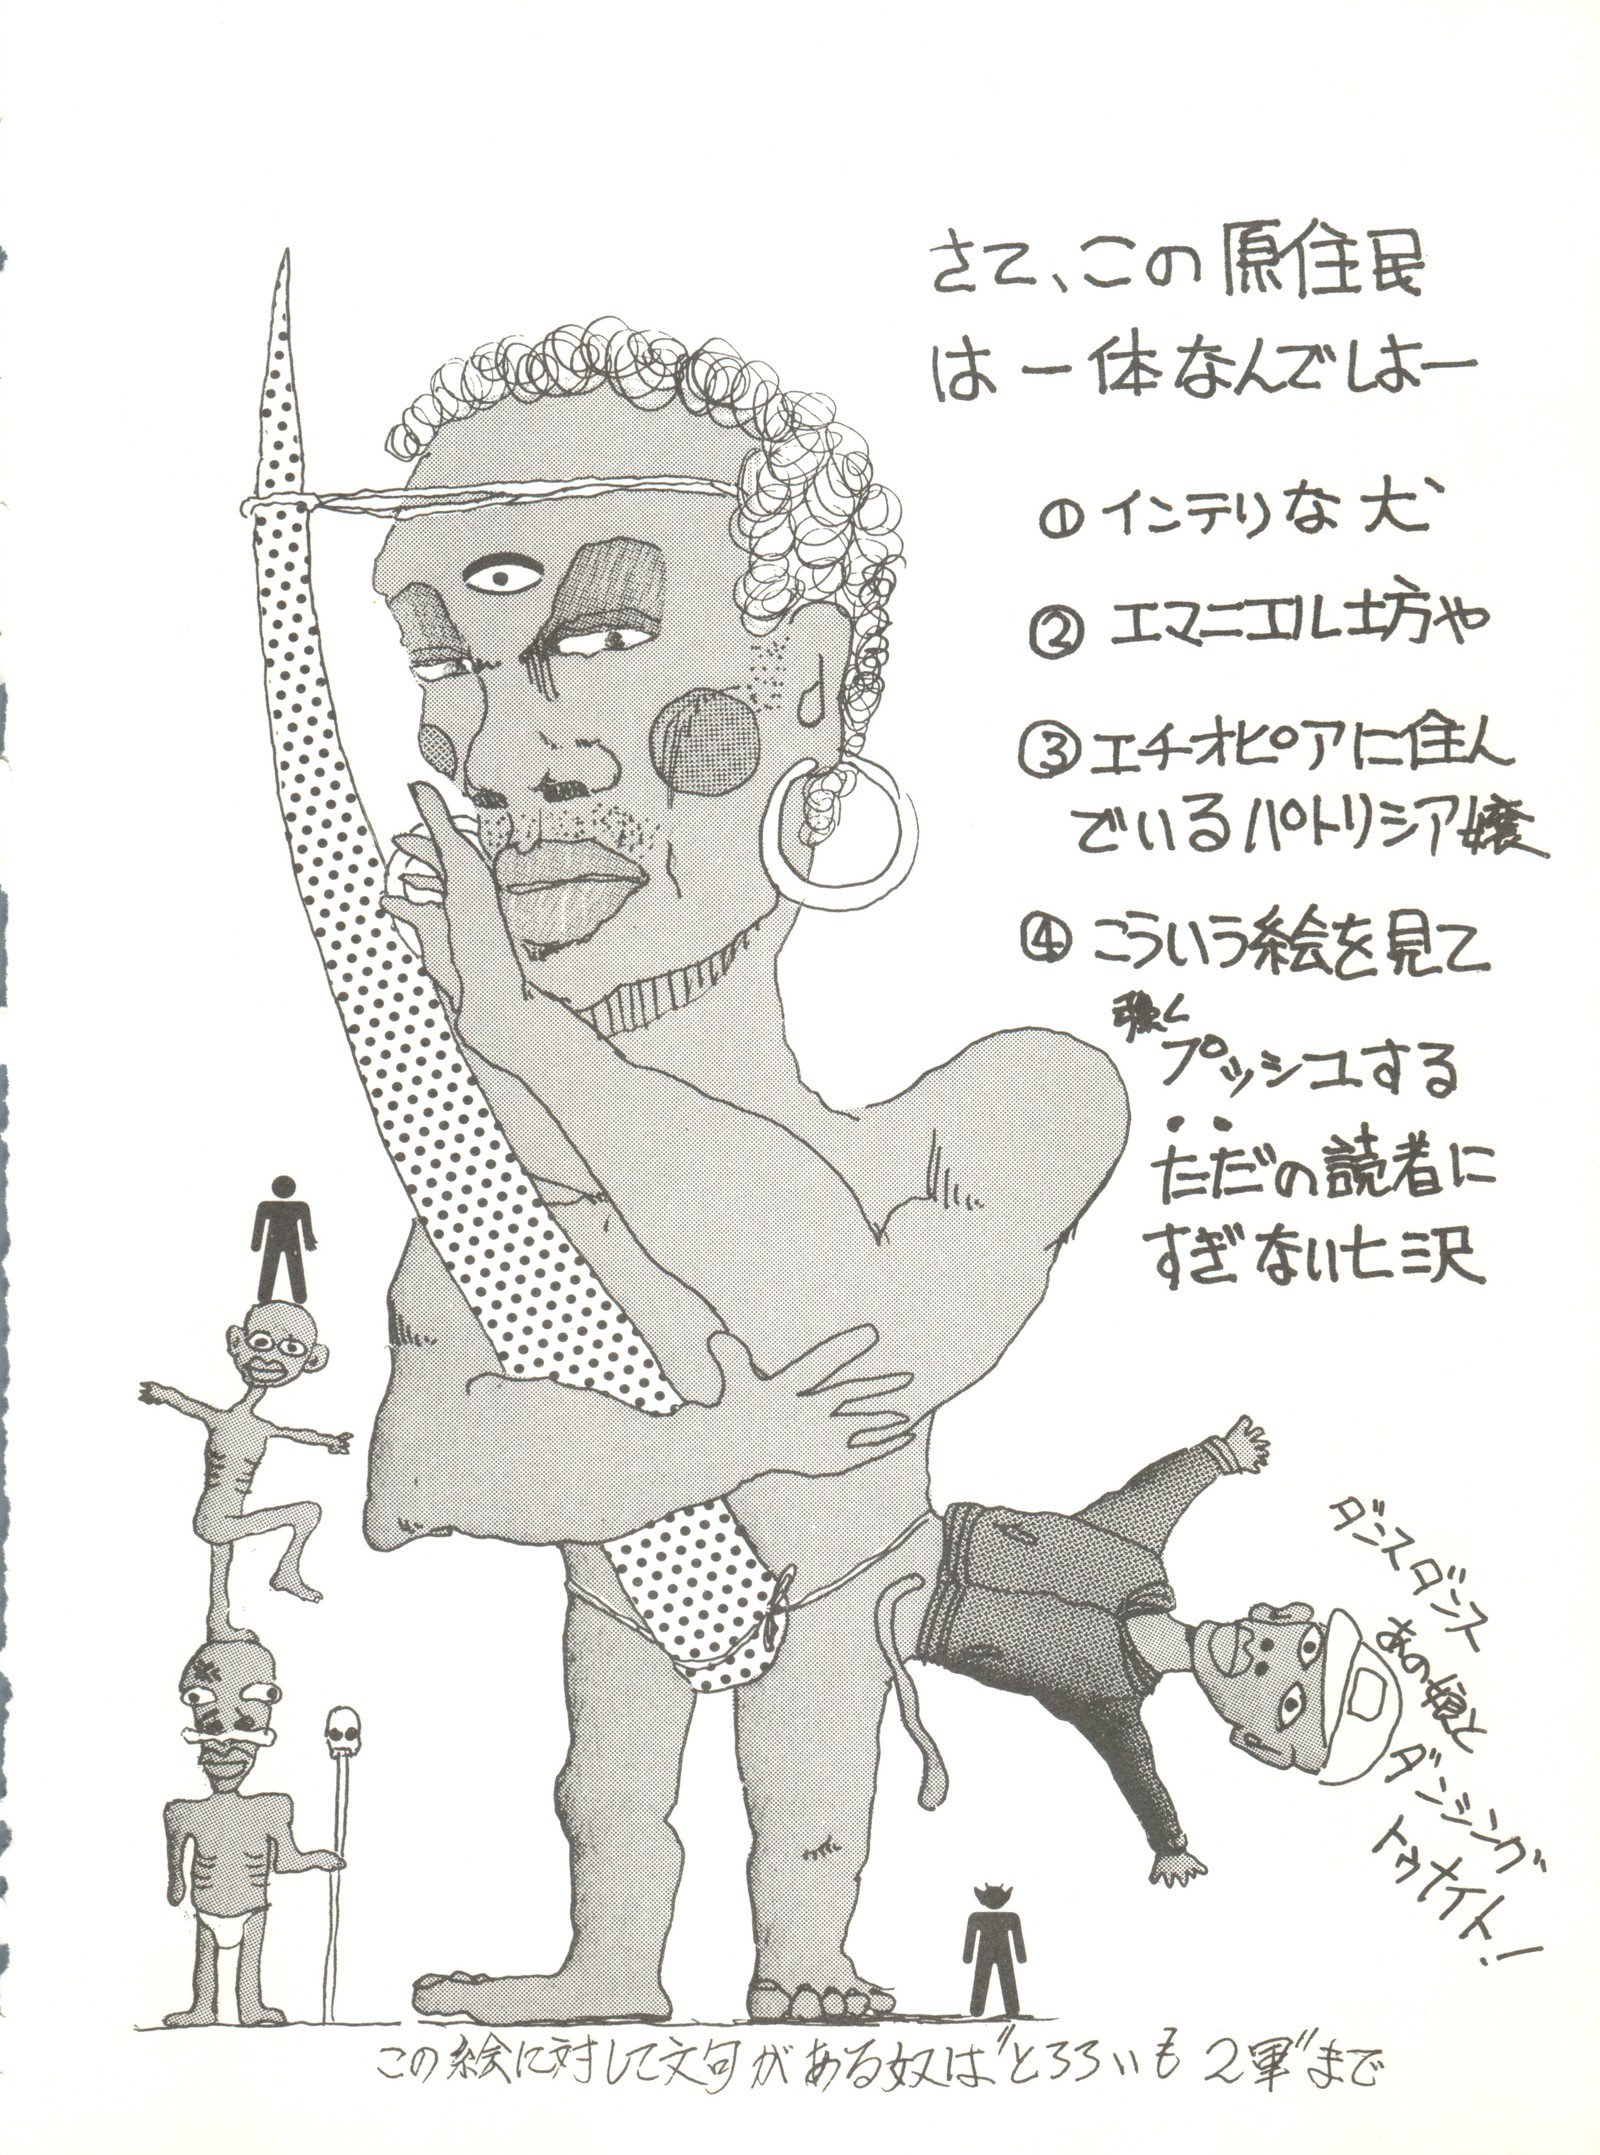 さて、この原住民
は一体なんでしょー
① インテリな犬
② エマニエル坊や
③ エチオピアに住ん
でいるパトリシア嬢
④ こういう絵を見て
強く
プッシュする
ただの読者に
すぎない七三沢
ダンスダンス
あの娘と
ダンシング
トゥナイト!
この絵に対して文句がある奴は"とろろいも2軍"まで